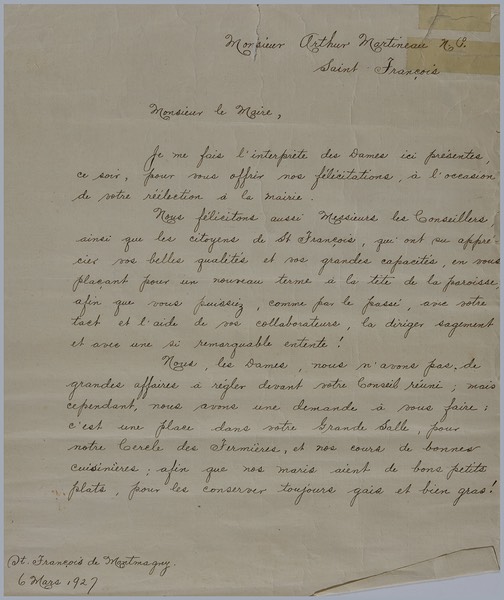 Monsieur Arthur Martineau N.P.
Saint François
Monsieur le Maire,
Je me fais l'interprète des Dames ici présentes,
ce soir, pour vous offrir nos félicitations, à l'occasion
de votre réélection à la mairie.
Nous félicitons aussi Messieurs les Conseillers,
ainsi que les citoyens de St François, qui ont su appré-
cier vos belles qualités et vos grandes capacités, en vous
plaçant pour un nouveau terme à la tête de la paroisse,
afin que vous puissiez, comme par le passé, avec votre
tact et l'aide de vos collaborateurs, la diriger sagement
et avec une si remarquable entente!
Nous, les Dames, nous n'avons pas de
grandes affaires à régler devant votre Conseil réuni; mais
cependant, nous avons une demande à vous faire:
c'est une place dans votre Grande Salle, pour
notre Cercle des Fermières, et nos cours de bonnes
cuisinières; afin que nos maris aient de bons petits
plats, pour les conserver toujours gais et bien gras!
St. François de Montmagny.
6 Mars 1927